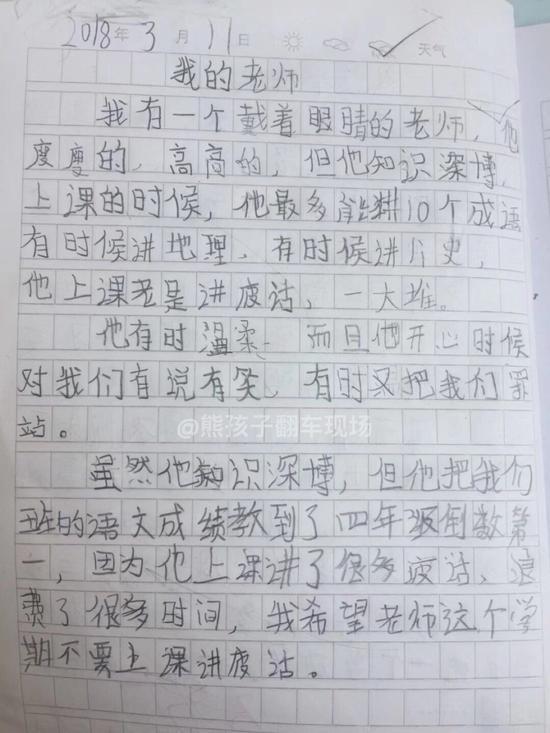 2018年3月11日 天气
我的老师
我有一个戴着眼睛的老师，他
瘦瘦的，高高的，但他知识深博，
上课的时候，他最多能讲10个成语
有时候讲地理，有时候讲历史，
他上课老是讲废话，一大堆。
他有时温柔 而且他开心时候
对我们有说有笑，有时又把我们罚
站。
@熊孩子翻车现场
虽然他知识深博，但他把我们
班的语文成绩教到了四年级倒数第
一，因为他上课讲了很多废话，浪
费了很多时间，我希望老师这个学
期不要上课讲废话。